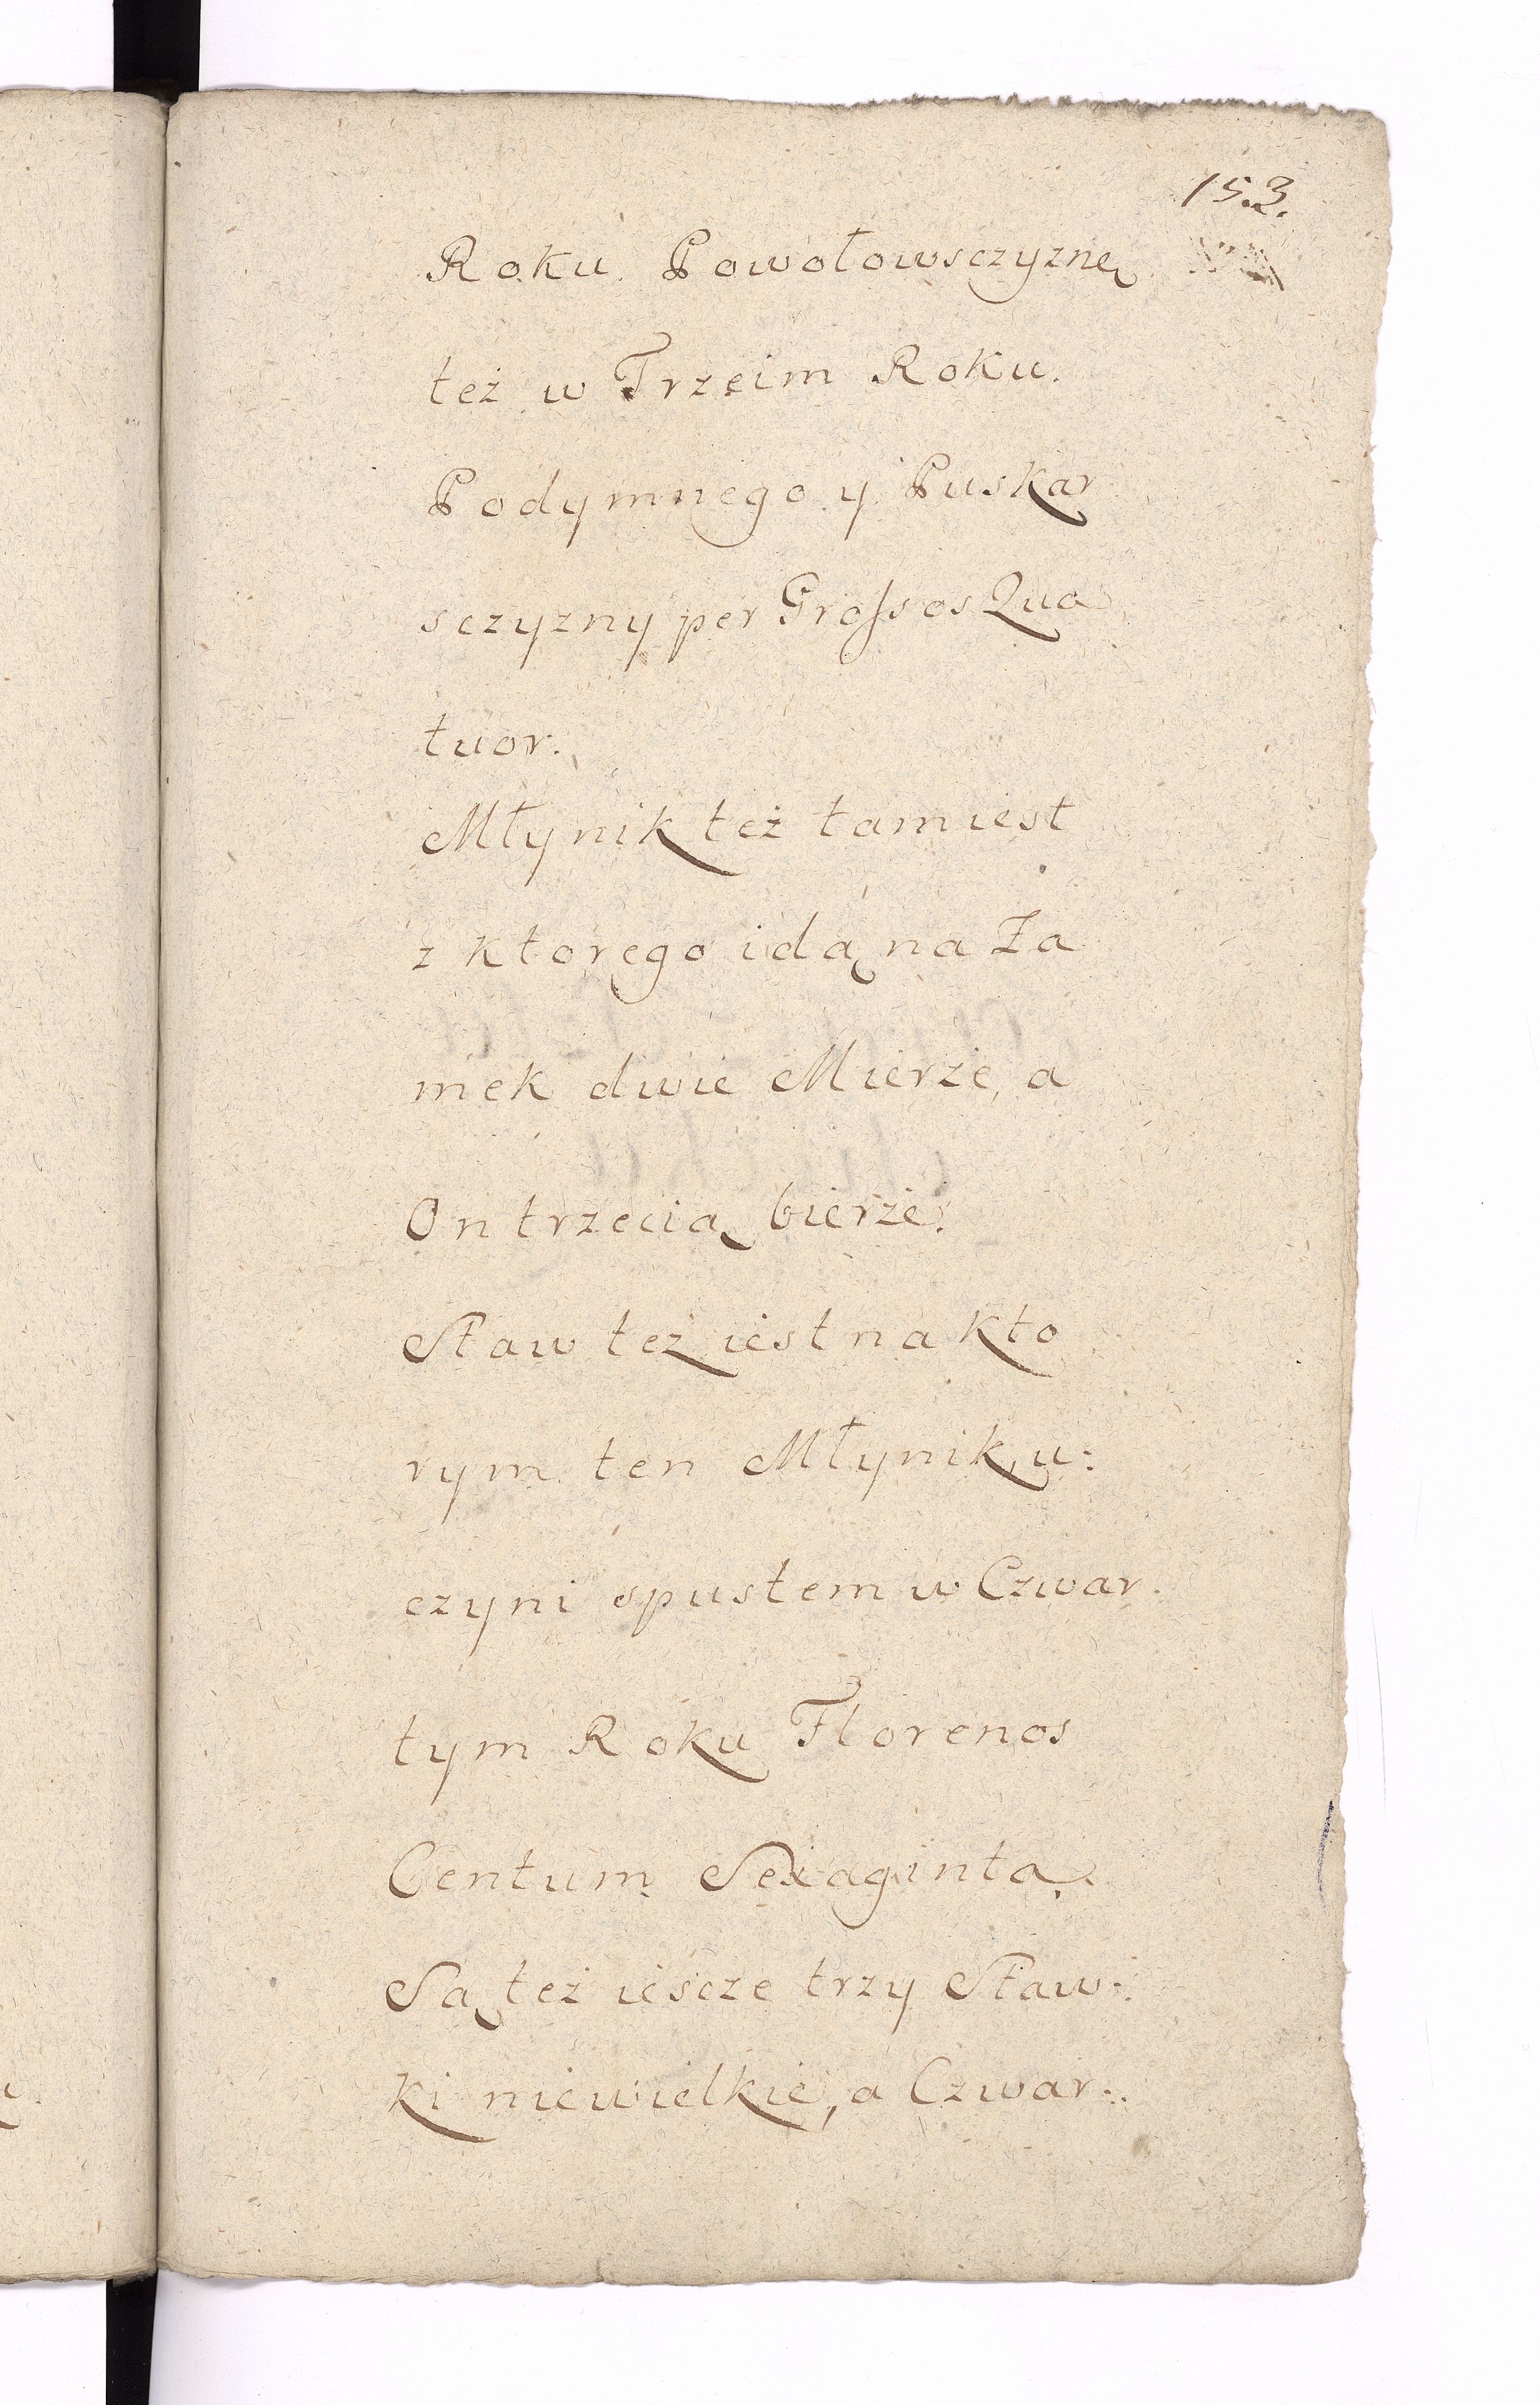 153.
Roku Powołowsczyznę
też w Trzeim Roku.
Podymnego y Puskar
sczyzny per Grossos Qua
tuor.
Młynik też tam iest
z ktorego idą na Za
mek dwie Mierze, a
On trzecią bierze.
Staw tez iest na kto
rym ten Młynik u:
czyni spustem w Czwar.
tym Roku Florenos
Centum Sexaginta.
Są też iescze trzy Staw:
ki niewielkie, a Czwar: